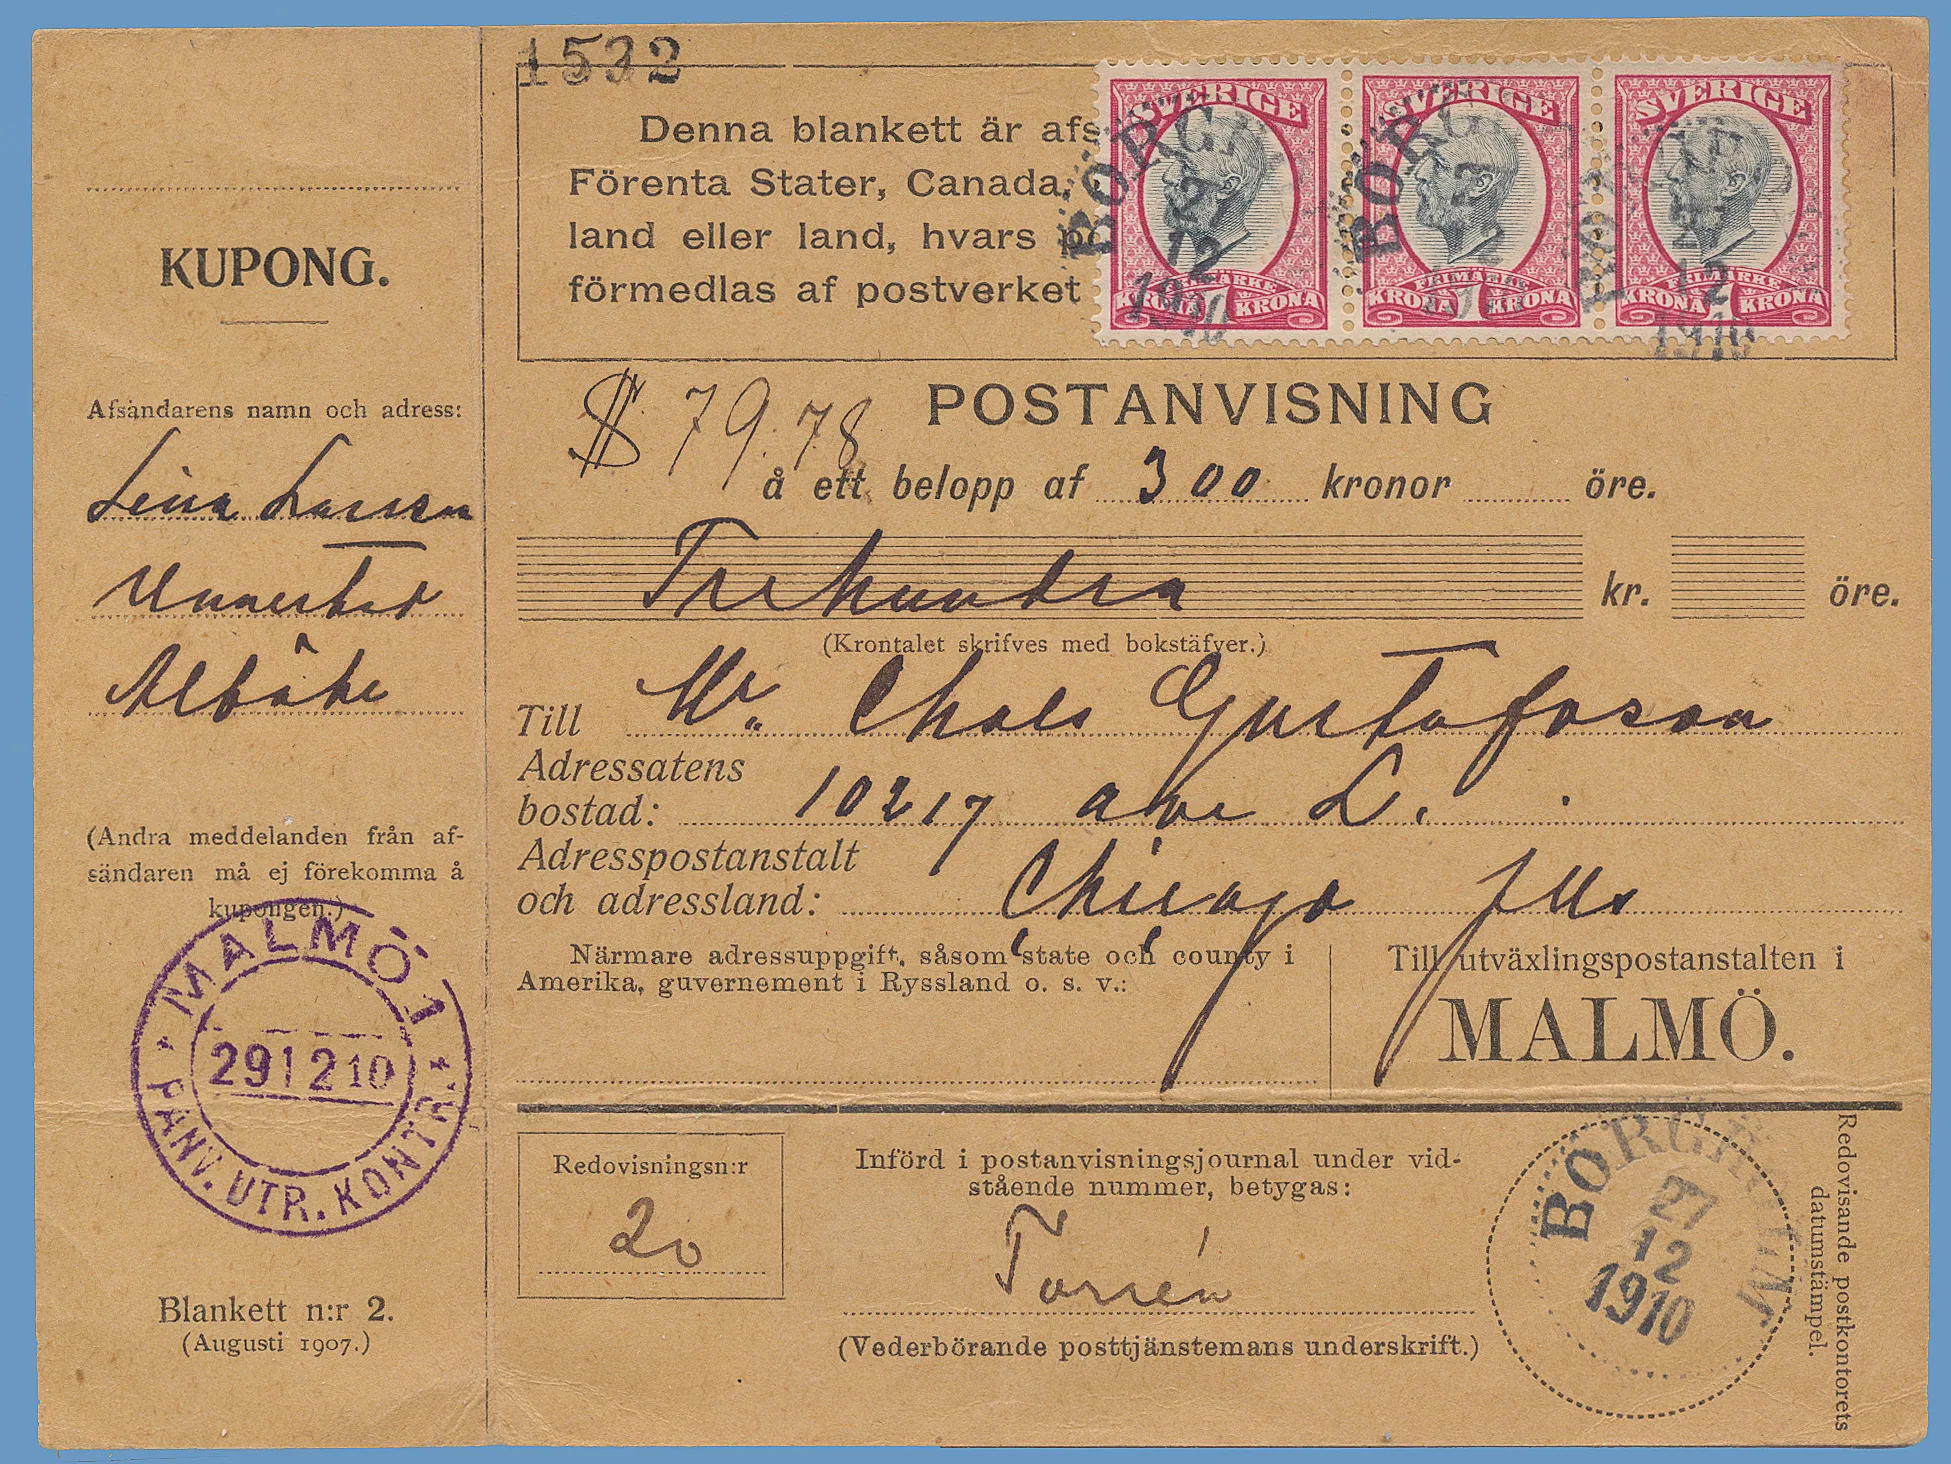 1532
Denna blankett är afs
Förenta Stater, Canada,
land eller land, hvars po
förmedlas af postverket
SVERIGE
FRIMÄRKE
KRONA 1 KRONA
SVERIGE
FRIMÄRKE
KRONA 1 KRONA
SVERIGE
FRIMÄRKE
KRONA 1 KRONA
BORG
27
12
1910
BORG
BORG
12
1910
KUPONG.
Afsändarens namn och adress:
Lina Larsson
Unnerstad
Alböke
(Andra meddelanden från af-
sändaren må ej förekomma å
kupongen.)
MALMÖ 1
291210
PANV. UTR. KONTR.
Blankett n:r 2.
(Augusti 1907.)
$ 79.78
POSTANVISNING
å ett belopp af 300 kronor öre.
Trehundra kr. öre.
(Krontalet skrifves med bokstäfver.)
Till Mr. Chals Gustafsson
Adressatens
bostad: 10217 ave L.
Adresspostanstalt
och adressland: Chicago Ills
Närmare adressuppgift, såsom state och county i
Amerika, guvernement i Ryssland o. s. v.:
Till utväxlingspostanstalten i
MALMÖ.
Redovisningsn:r
20
Införd i postanvisningsjournal under vid-
stående nummer, betygas:
Torrén
(Vederbörande posttjänstemans underskrift.)
BORGHOLM
27
12
1910
Redovisande postkontorets
datumstämpel.